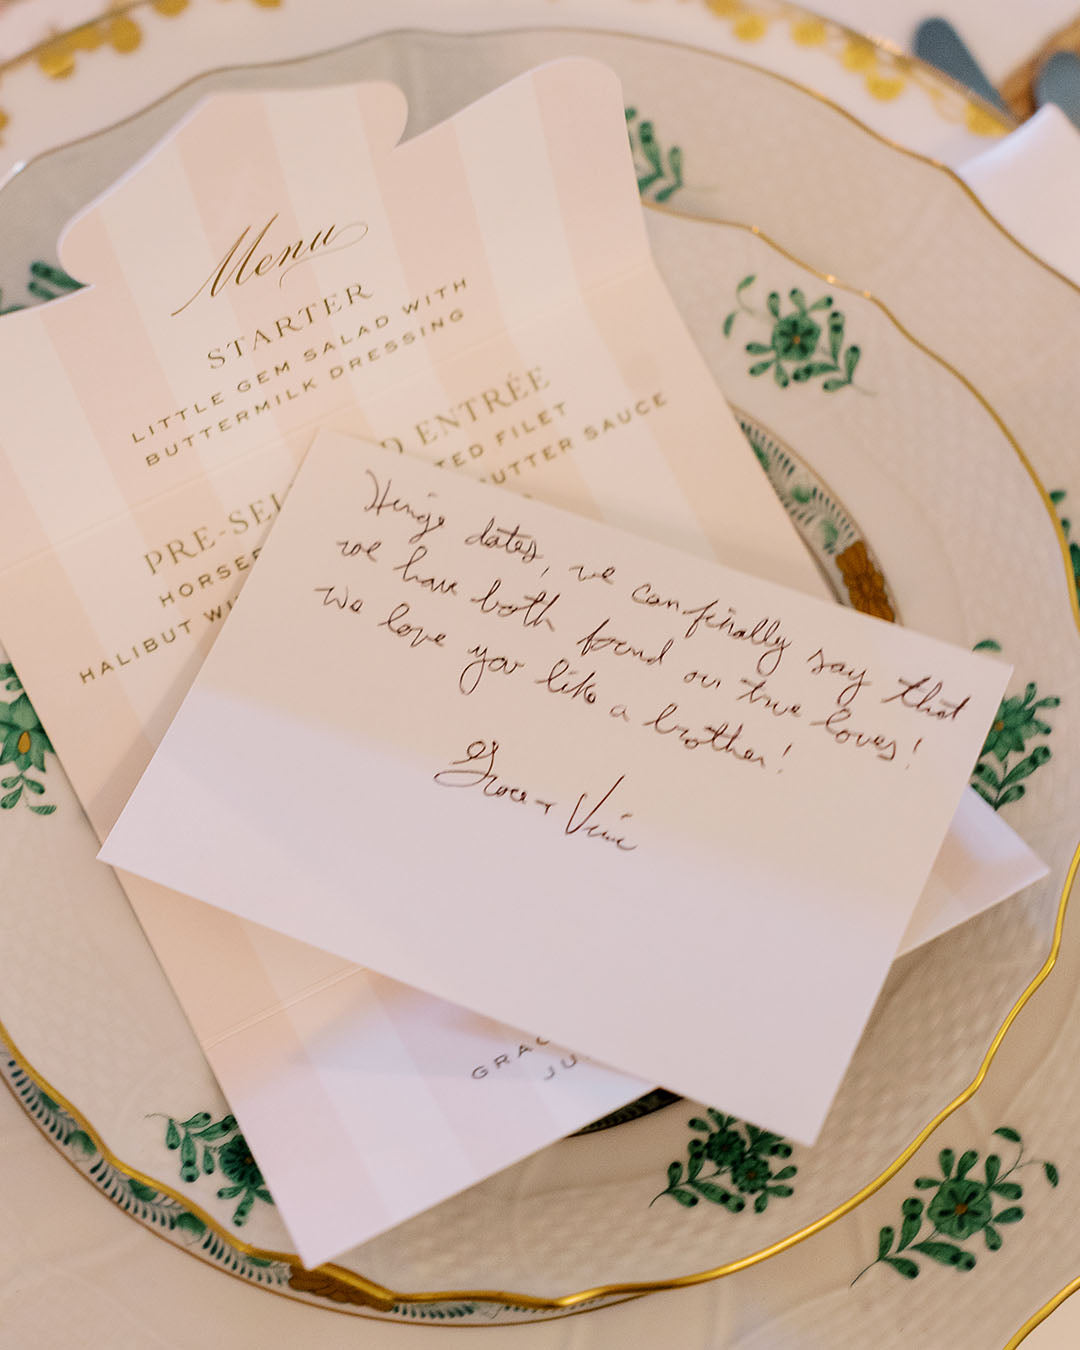 Menu
STARTER
LITTLE GEM SALAD WITH
BUTTERMILK DRESSING
PRE-SEL D ENTRÉE
HORSE TED FILET
HALIBUT WI UTTER SAUCE
Hinge dates, we can finally say that
we have both found our true loves!
We love you like a brother!
Grace + Vinic
GRAC
JU